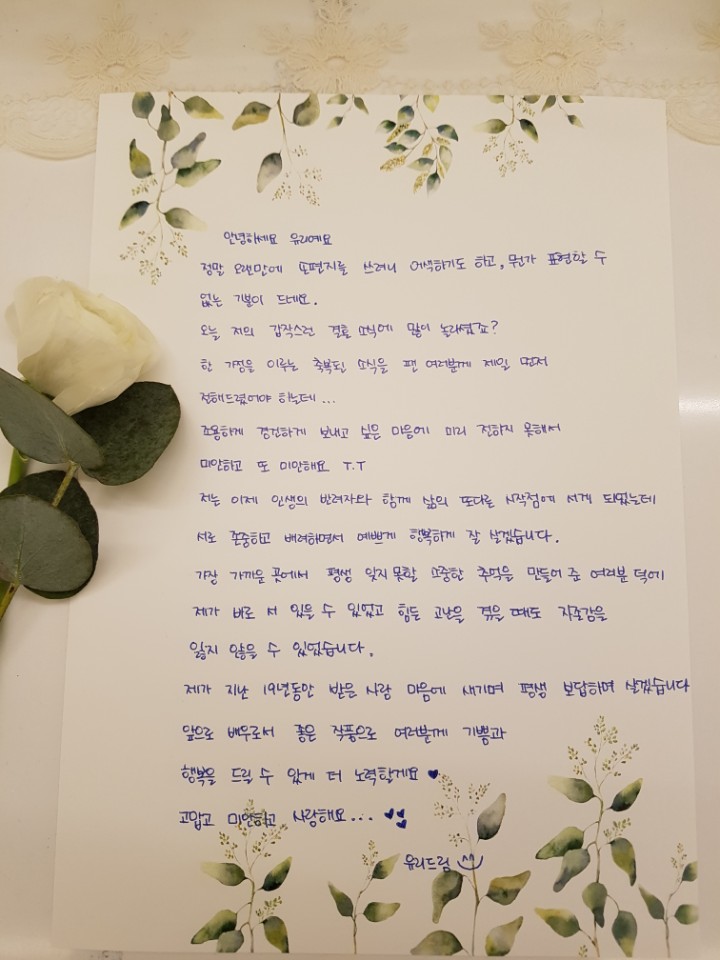 안녕하세요 유리예요
정말 오랜만에 손편지를 쓰려니 어색하기도 하고, 뭔가 표현할 수
없는 기분이 드네요.
오늘 저의 갑작스런 결혼 소식에 많이 놀라셨죠?
한 가정을 이루는 축복된 소식을 팬 여러분께 제일 먼저
전해드렸어야 하는데...
조용하게 경건하게 보내고 싶은 마음에 미리 전하지 못해서
미안하고 또 미안해요 T.T
저는 이제 인생의 반려자와 함께 삶의 또다른 시작점에 서게 되었는데
서로 존중하고 배려하면서 예쁘게 행복하게 잘 살겠습니다.
가장 가까운 곳에서 평생 잊지못할 소중한 추억을 만들어 준 여러분 덕에
제가 바로 서 있을 수 있었고 힘든 고난을 겪을 때도 자존감을
잃지 않을 수 있었습니다.
제가 지난 19년동안 받은 사랑 마음에 새기며 평생 보답하며 살겠습니다
앞으로 배우로서 좋은 작품으로 여러분께 기쁨과
행복을 드릴 수 있게 더 노력할게요 ♥
고맙고 미안하고 사랑해요... ♥♥♥
유리드림